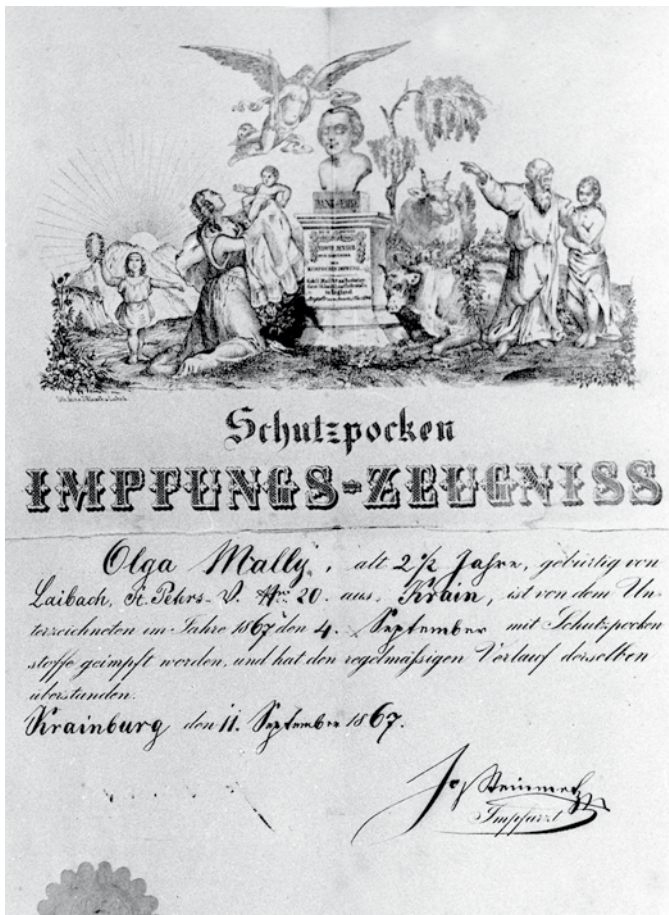 DANK-EHRE
Schutzpocken
IMPFUNGS=ZEUGNISS
Olga Mally, alt 2 1/2 Jahre, gebürtig von
Laibach, St. Petrs-V. Nro 20. aus Krain, ist von dem Un-
terzeichneten im Jahre 1867 den 4. September mit Schutzpocken
stoffe geimpft worden, und hat den regelmäßigen Verlauf derselben
überstanden.
Krainburg den 11. September 1867.
Steinmetz
Impfarzt